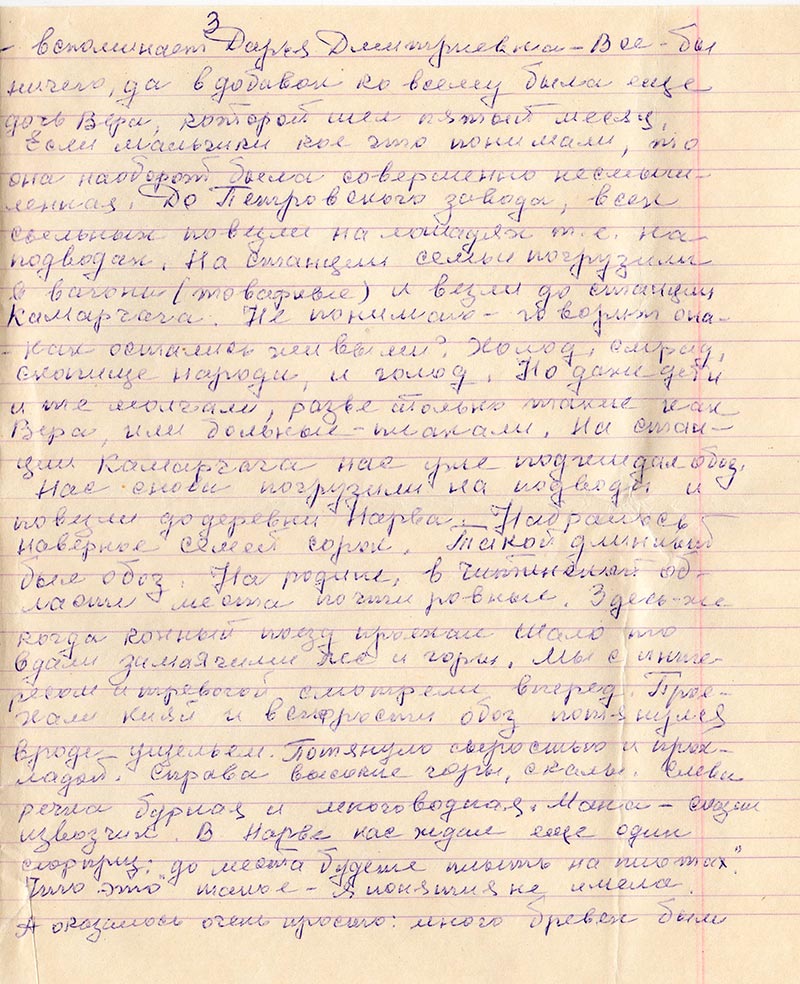 3
- вспоминает Дарья Дмитриевна - Все-бы
ничего, да в добавок ко всему была еще
дочь Вера, которой шел пятый месяц.
Если мальчики кое что понимали, то
она наоборот была совершенно несмыш-
ленная. До Петровского завода, всех
сыльных повезли на лошадях т.е. на
подводах. На станции семьи погрузили
в вагоны (товарные) и везли до станции
Камарчага. Не понимаю - говорит она -
- как остались живыми? Холод, смрад,
скопище народа, и голод. Но даже дети
и те молчали, разве только такие как
Вера, или больные - плакали. На стан-
ции Камарчага нас уже поджидал обоз.
Нас снова погрузили на подводы и
повезли до деревни Нарва. Набралось
наверное семей сорок. Такой длинный
был обоз. На родине, в читинской об-
ласти места почти ровные. Здесь-же
когда конный поезд проехал Шало то
вдали замаячили лес и горы. Мы с инте-
ресом и тревогой смотрели вперед. Прое-
хали Кияй и вскорости обоз потянулся
вроде ущельем. Потянуло сыростью и прох-
ладой. Справа высокие горы, скалы. Слева
речка бурная и многоводная. Мана - сказал
извозчик. В Нарве нас ждал еще один
сюрприз: до места будете плыть на плотах".
Что это" такое - я понятия не имела.
А оказалось очень просто: много бревен были